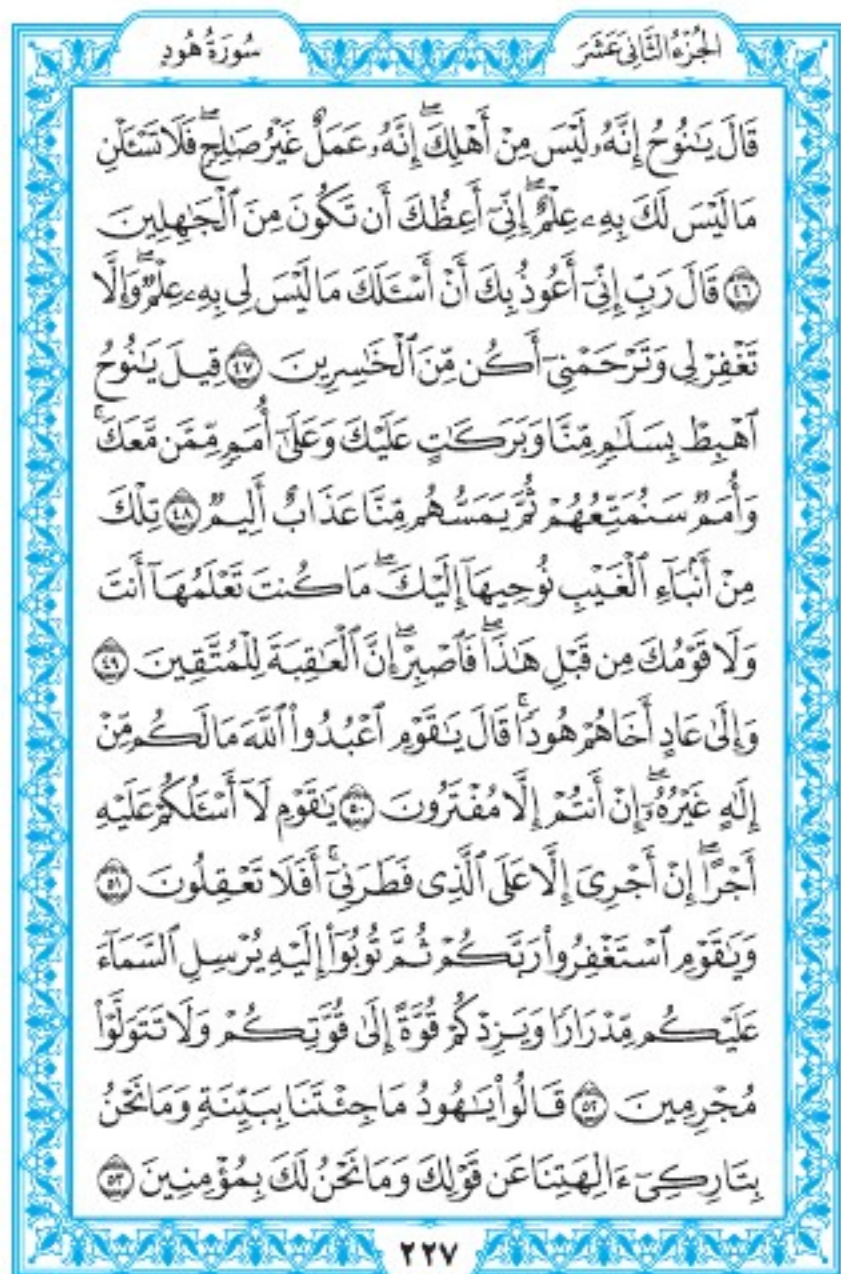 الجُزْءُ الثَّانِيَ عَشَرَ
سُورَةُ هُودٍ
قَالَ يَٰنُوحُ إِنَّهُۥ لَيْسَ مِنْ أَهْلِكَۖ إِنَّهُۥ عَمَلٌ غَيْرُ صَٰلِحٖۖ فَلَا تَسْـَٔلْنِ
مَا لَيْسَ لَكَ بِهِۦ عِلْمٌۖ إِنِّيٓ أَعِظُكَ أَن تَكُونَ مِنَ ٱلْجَٰهِلِينَ
٤٦ قَالَ رَبِّ إِنِّيٓ أَعُوذُ بِكَ أَنْ أَسْـَٔلَكَ مَا لَيْسَ لِي بِهِۦ عِلْمٌۖ وَإِلَّا
تَغْفِرْ لِي وَتَرْحَمْنِيٓ أَكُن مِّنَ ٱلْخَٰسِرِينَ ٤٧ قِيلَ يَٰنُوحُ
ٱهْبِطْ بِسَلَٰمٖ مِّنَّا وَبَرَكَٰتٍ عَلَيْكَ وَعَلَىٰٓ أُمَمٖ مِّمَّن مَّعَكَۚ
وَأُمَمٌ سَنُمَتِّعُهُمْ ثُمَّ يَمَسُّهُم مِّنَّا عَذَابٌ أَلِيمٌ ٤٨ تِلْكَ
مِنْ أَنۢبَآءِ ٱلْغَيْبِ نُوحِيهَآ إِلَيْكَۖ مَا كُنتَ تَعْلَمُهَآ أَنتَ
وَلَا قَوْمُكَ مِن قَبْلِ هَٰذَاۖ فَٱصْبِرْۖ إِنَّ ٱلْعَٰقِبَةَ لِلْمُتَّقِينَ ٤٩
وَإِلَىٰ عَادٍ أَخَاهُمْ هُودٗاۚ قَالَ يَٰقَوْمِ ٱعْبُدُوا۟ ٱللَّهَ مَا لَكُم مِّنْ
إِلَٰهٍ غَيْرُهُۥٓۖ إِنْ أَنتُمْ إِلَّا مُفْتَرُونَ ٥٠ يَٰقَوْمِ لَآ أَسْـَٔلُكُمْ عَلَيْهِ
أَجْرًاۖ إِنْ أَجْرِيَ إِلَّا عَلَى ٱلَّذِي فَطَرَنِيٓۚ أَفَلَا تَعْقِلُونَ ٥١
وَيَٰقَوْمِ ٱسْتَغْفِرُوا۟ رَبَّكُمْ ثُمَّ تُوبُوٓا۟ إِلَيْهِ يُرْسِلِ ٱلسَّمَآءَ
عَلَيْكُم مِّدْرَارٗا وَيَزِدْكُمْ قُوَّةً إِلَىٰ قُوَّتِكُمْ وَلَا تَتَوَلَّوْا۟
مُجْرِمِينَ ٥٢ قَالُوا۟ يَٰهُودُ مَا جِئْتَنَا بِبَيِّنَةٖ وَمَا نَحْنُ
بِتَارِكِيٓ ءَالِهَتِنَا عَن قَوْلِكَ وَمَا نَحْنُ لَكَ بِمُؤْمِنِينَ ٥٣
٢٢٧